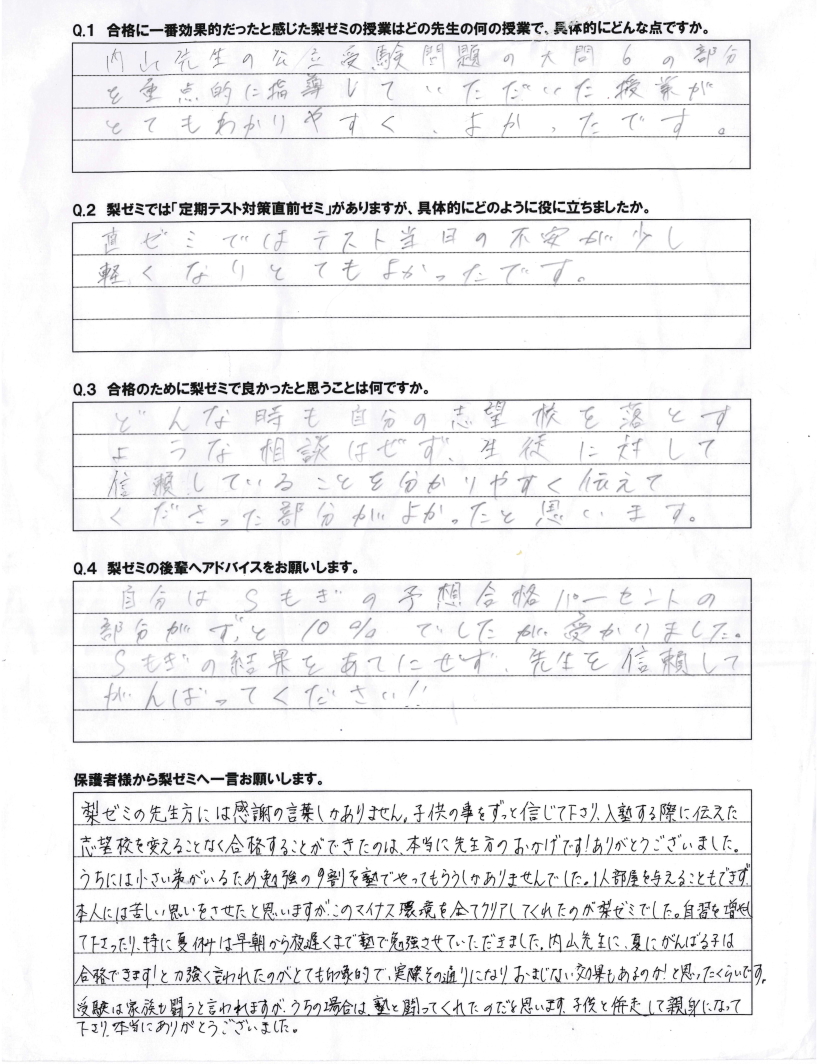 Q.1 合格に一番効果的だったと感じた梨ゼミの授業はどの先生の何の授業で、具体的にどんな点ですか。
内山先生の公立受験問題の大問6の部分
を重点的に指導していただいた授業が
とてもわかりやすく、よかったです。
Q.2 梨ゼミでは「定期テスト対策直前ゼミ」がありますが、具体的にどのように役に立ちましたか。
直ゼミではテスト当日の不安が少し
軽くなりとてもよかったです。
Q.3 合格のために梨ゼミで良かったと思うことは何ですか。
どんな時も自分の志望校を落とす
ような相談はせず、生徒に対して
信頼していることを分かりやすく伝えて
くださった部分がよかったと思います。
Q.4 梨ゼミの後輩へアドバイスをお願いします。
自分はSもぎの予想合格パーセントの
部分がずっと10%でしたが受かりました。
Sもぎの結果をあてにせず、先生を信頼して
がんばってください!!
保護者様から梨ゼミへ一言お願いします。
梨ゼミの先生方には感謝の言葉しかありません。子供の事をずっと信じて下さり、入塾する際に伝えた
志望校を変えることなく合格することができたのは、本当に先生方のおかげです!ありがとうございました。
うちには小さい弟がいるため勉強の9割を塾でやってもらうしかありませんでした。1人部屋を与えることもできず、
本人には苦しい思いをさせたと思いますが、このマイナス環境を全てクリアしてくれたのが梨ゼミでした。自習を増やして
下さったり、特に夏休みは早朝から夜遅くまで塾で勉強させていただきました。内山先生に、夏にがんばる子は
合格できます!と力強く言われたのがとても印象的で、実際その通りになり おまじない効果もあるのか!と思ったくらいです。
受験は家族も闘うと言われますが、うちの場合は、塾と闘ってくれたのだと思います。子供と併走して親身になって
下さり、本当にありがとうございました。